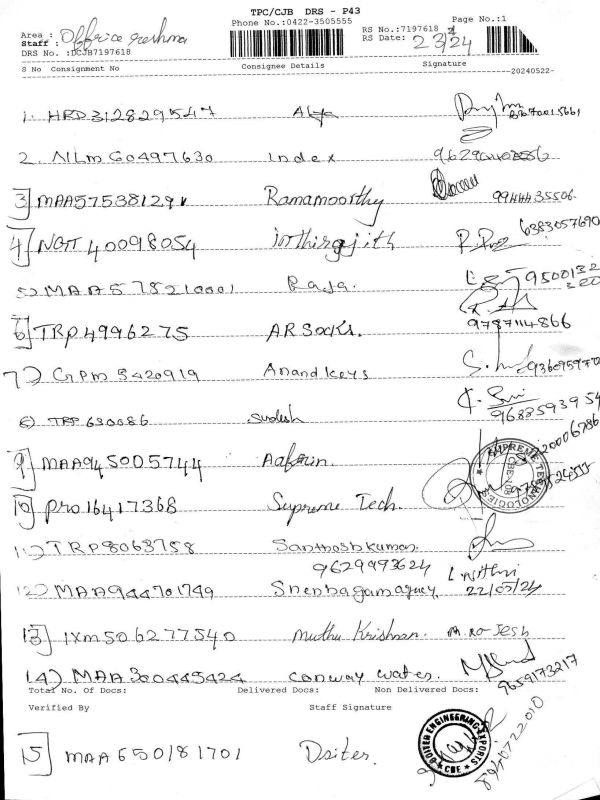 TPC/CJB DRS - P43
Phone No.:0422-3505555
Page No.:1
Area :
Staff : Office reshma
DRS No. :DCJB7197618
RS No.:7197618
RS Date: 23/24
S No Consignment No Consignee Details Signature
20240522-
1. HRD312829547
2. NLM G0497630 Index
3] MAA575381291 Ramamoorthy 9944435506
4] NGTT 40098054 6383057690
5) MAA578210001 Raja. 9500132
320
6] TRP4996275 AR Socks. 9787114866
7) GPM 5420919 Anand keys
8) TRP 630086 Sudesh 9688593954
9] MAA945005744
10] PRO16417368 Supreme Tech.
SUPREME TECHNOLOGIES
11) TRP8063758 Santhosh kumar
9629993624
12) MAA944701749 Shenbagamaguey 22/05/24
13] IXM506277540 Muthu Krishnan. M. Rajesh
14) MAA300445424 conway water. 9659173217
Total No. Of Docs: Delivered Docs: Non Delivered Docs:
Verified By Staff Signature
15] MAA650181701 Dsiter.
ENGINEERING EXPORTS
CBE